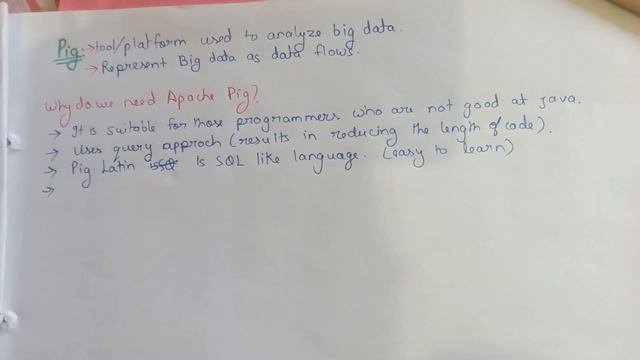 Pig → tool/platform used to analyze big data.
→ Represent Big data as data flows.
Why do we need Apache Pig?
→ It is suitable for those programmers who are not good at Java.
→ Uses query approch (results in reducing the length of code).
→ Pig Latin is SQL like language. (easy to learn)
→